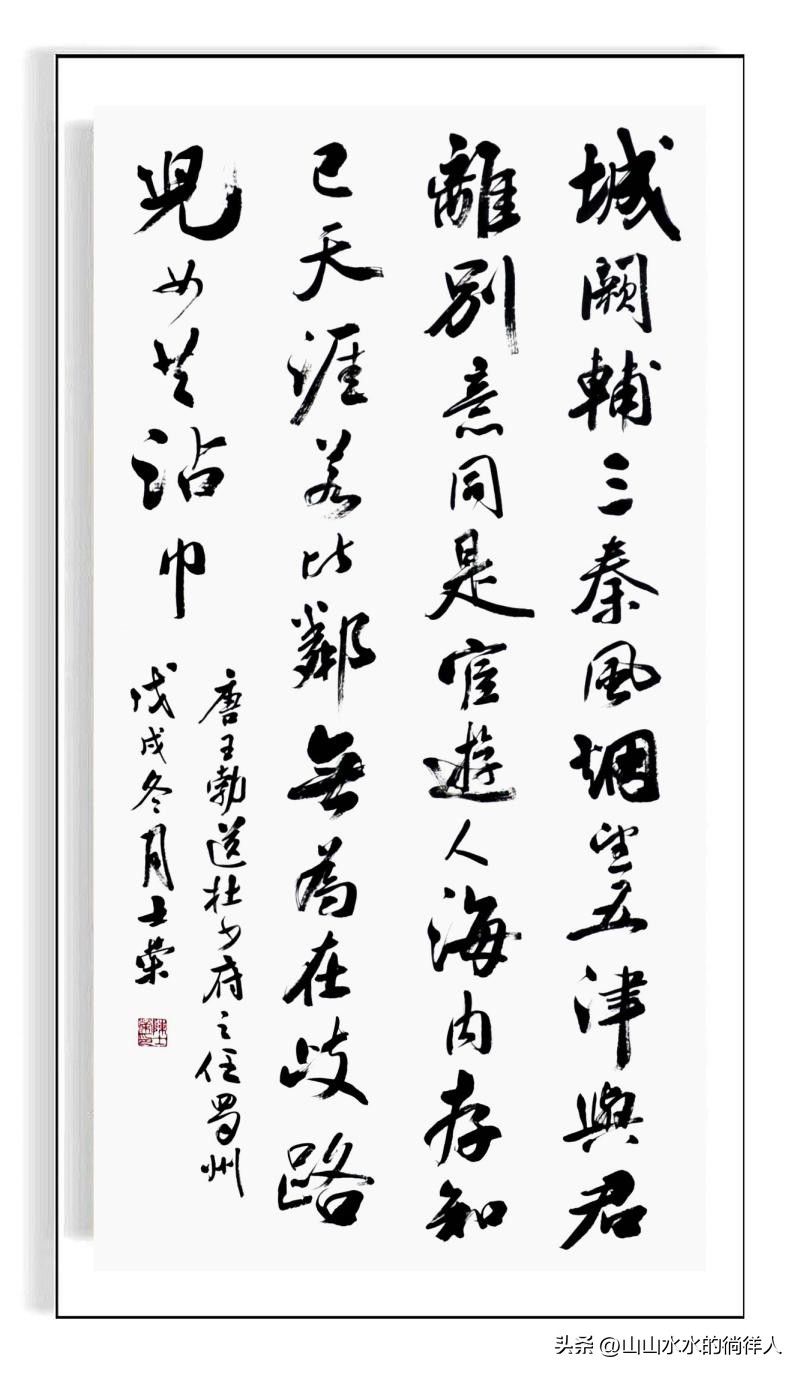 城闕輔三秦風烟望五津與君
離別意同是宦遊人海内存知
已天涯若比鄰無為在歧路
兒女共沾巾
唐王勃送杜少府之任蜀州
戊戌冬月士榮
头条 @山山水水的徜徉人